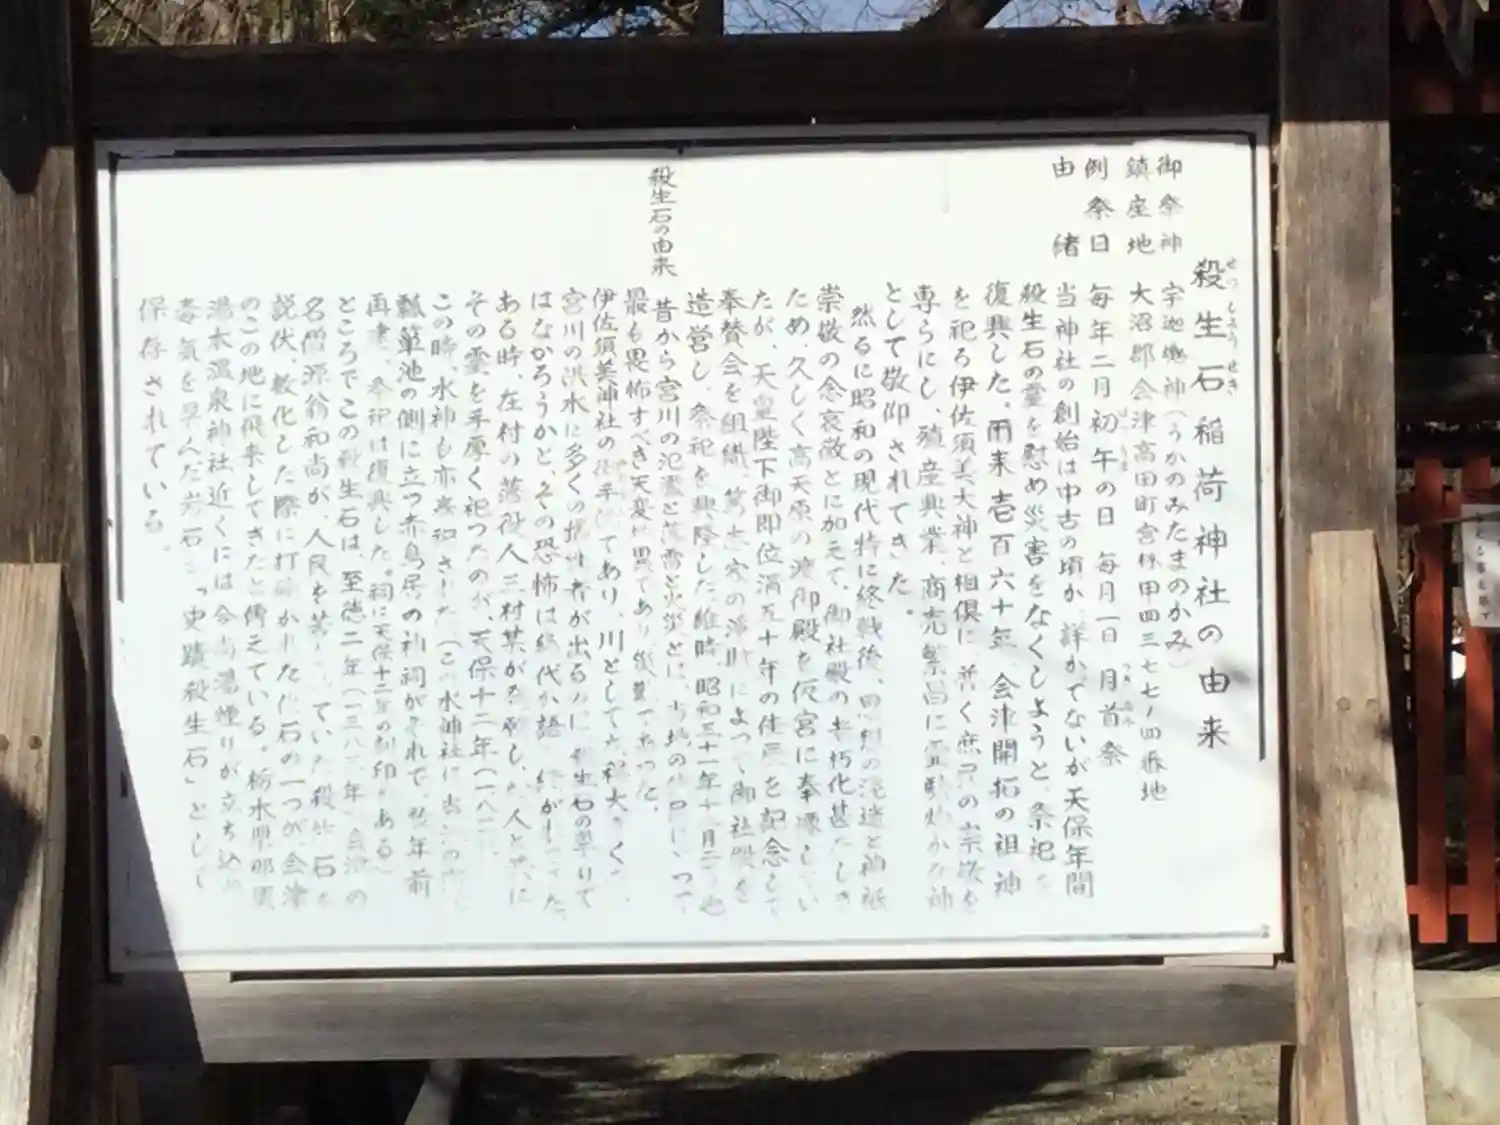 殺生石稲荷神社の由来
せっしょうせき
御祭神 宇迦魂神(うかのみたまのかみ)
鎮座地 大沼郡会津高田町宮林甲四三七七ノ四番地
例祭日 毎年二月初午の日 毎月一日 月首祭
由緒 当神社の創始は中古の頃か、詳かでないが天保年間
殺生石の霊を慰め災害をなくしようと、祭祀を
復興した。爾来壱百六十年、会津開拓の祖神
を祀ろ伊佐須美大神と相倶に普く庶民の崇敬を
専らにし、殖産興業、商売繁昌に霊験灼かな神
として敬仰されてきた。
然るに昭和の現代特に終戦後、思想の混迷と神祇
崇敬の念衰敝とに加えて、御社殿の老朽化甚だしき
ため、久しく高天原の渡御殿を仮宮に奉遷してい
たが、天皇陛下御即位満五十年の佳辰を記念して
奉賛会を組織、篤志家の浄財によって御社殿を
造営し、祭祀を興隆した。維時 昭和五十一年十月二 也
殺生石の由来
昔から宮川の氾濫と落雷と火災とは、当地の にとって
最も畏怖すべき天変地異であり であった。
伊佐須美神社の御手洗であり、川として
宮川の洪水に多くの犠牲者が出るのは殺生石の祟りで
はなかろうかと、その恐怖は代か語り
ある時、在村の藩役人三村某が 人と共に
その霊を手厚く祀つたのが、天保十二年(一八四
この時、水神も亦 された(この水神社は当
瓢箪池の側に立つ赤鳥居の神祠がそれで、数年前
再建、祭祀は復興した。祠に天保十二年の刻印がある)
ところでこの殺生石は、至徳二年(一三八 年)会津の
名僧源翁和尚が、人民を苦しめていた殺生石を
説伏、教化した際に打砕かれた化石の一つが、会津
のこの地に飛来してきたと傳えている。栃木県那須
湯本温泉神社近くには今尚湯煙りが立ち込め
毒気を孕んだ岩石は「史蹟殺生石」として
保存されている。